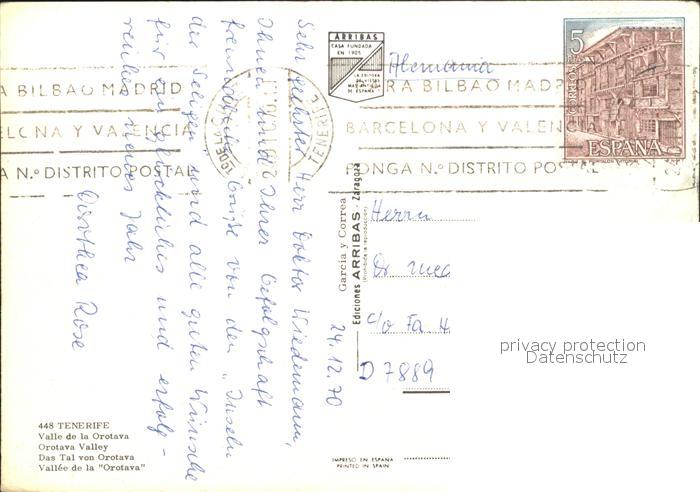 Sehr geehrter Herr Doktor Wiedemann,
Ihnen und Ihrer Gefolgschaft
freundliche Grüße von den „Inseln
der Seligen" und alle guten Wünsche
für ein glückliches und erfolg-
reiches neues Jahr
Dorothea Rose
24.12.70
448 TENERIFE
Valle de la Orotava
Orotava Valley
Das Tal von Orotava
Vallée de la "Orotava"
ARRIBAS
CASA FUNDADA
EN 1905
LA EDITORA
DE VISTAS
MAS ANTIGUA
DE ESPAÑA
Garcia y Correa
Ediciones ARRIBAS - Zaragoza
(Prohibida la reproducción)
IMPRESO EN ESPAÑA
PRINTED IN SPAIN
Alemania
5
CORREOS
ESPAÑA
A BILBAO MADRID
LCNA Y VALENCIA
A N.º DISTRITO POSTAL
TENERIFE
RA BILBAO MADR
BARCELONA Y VALENCIA
PONGA N.º DISTRITO POSTAL
Herrn
Dr. med
c/o Fa. H
D 7889
privacy protection
Datenschutz